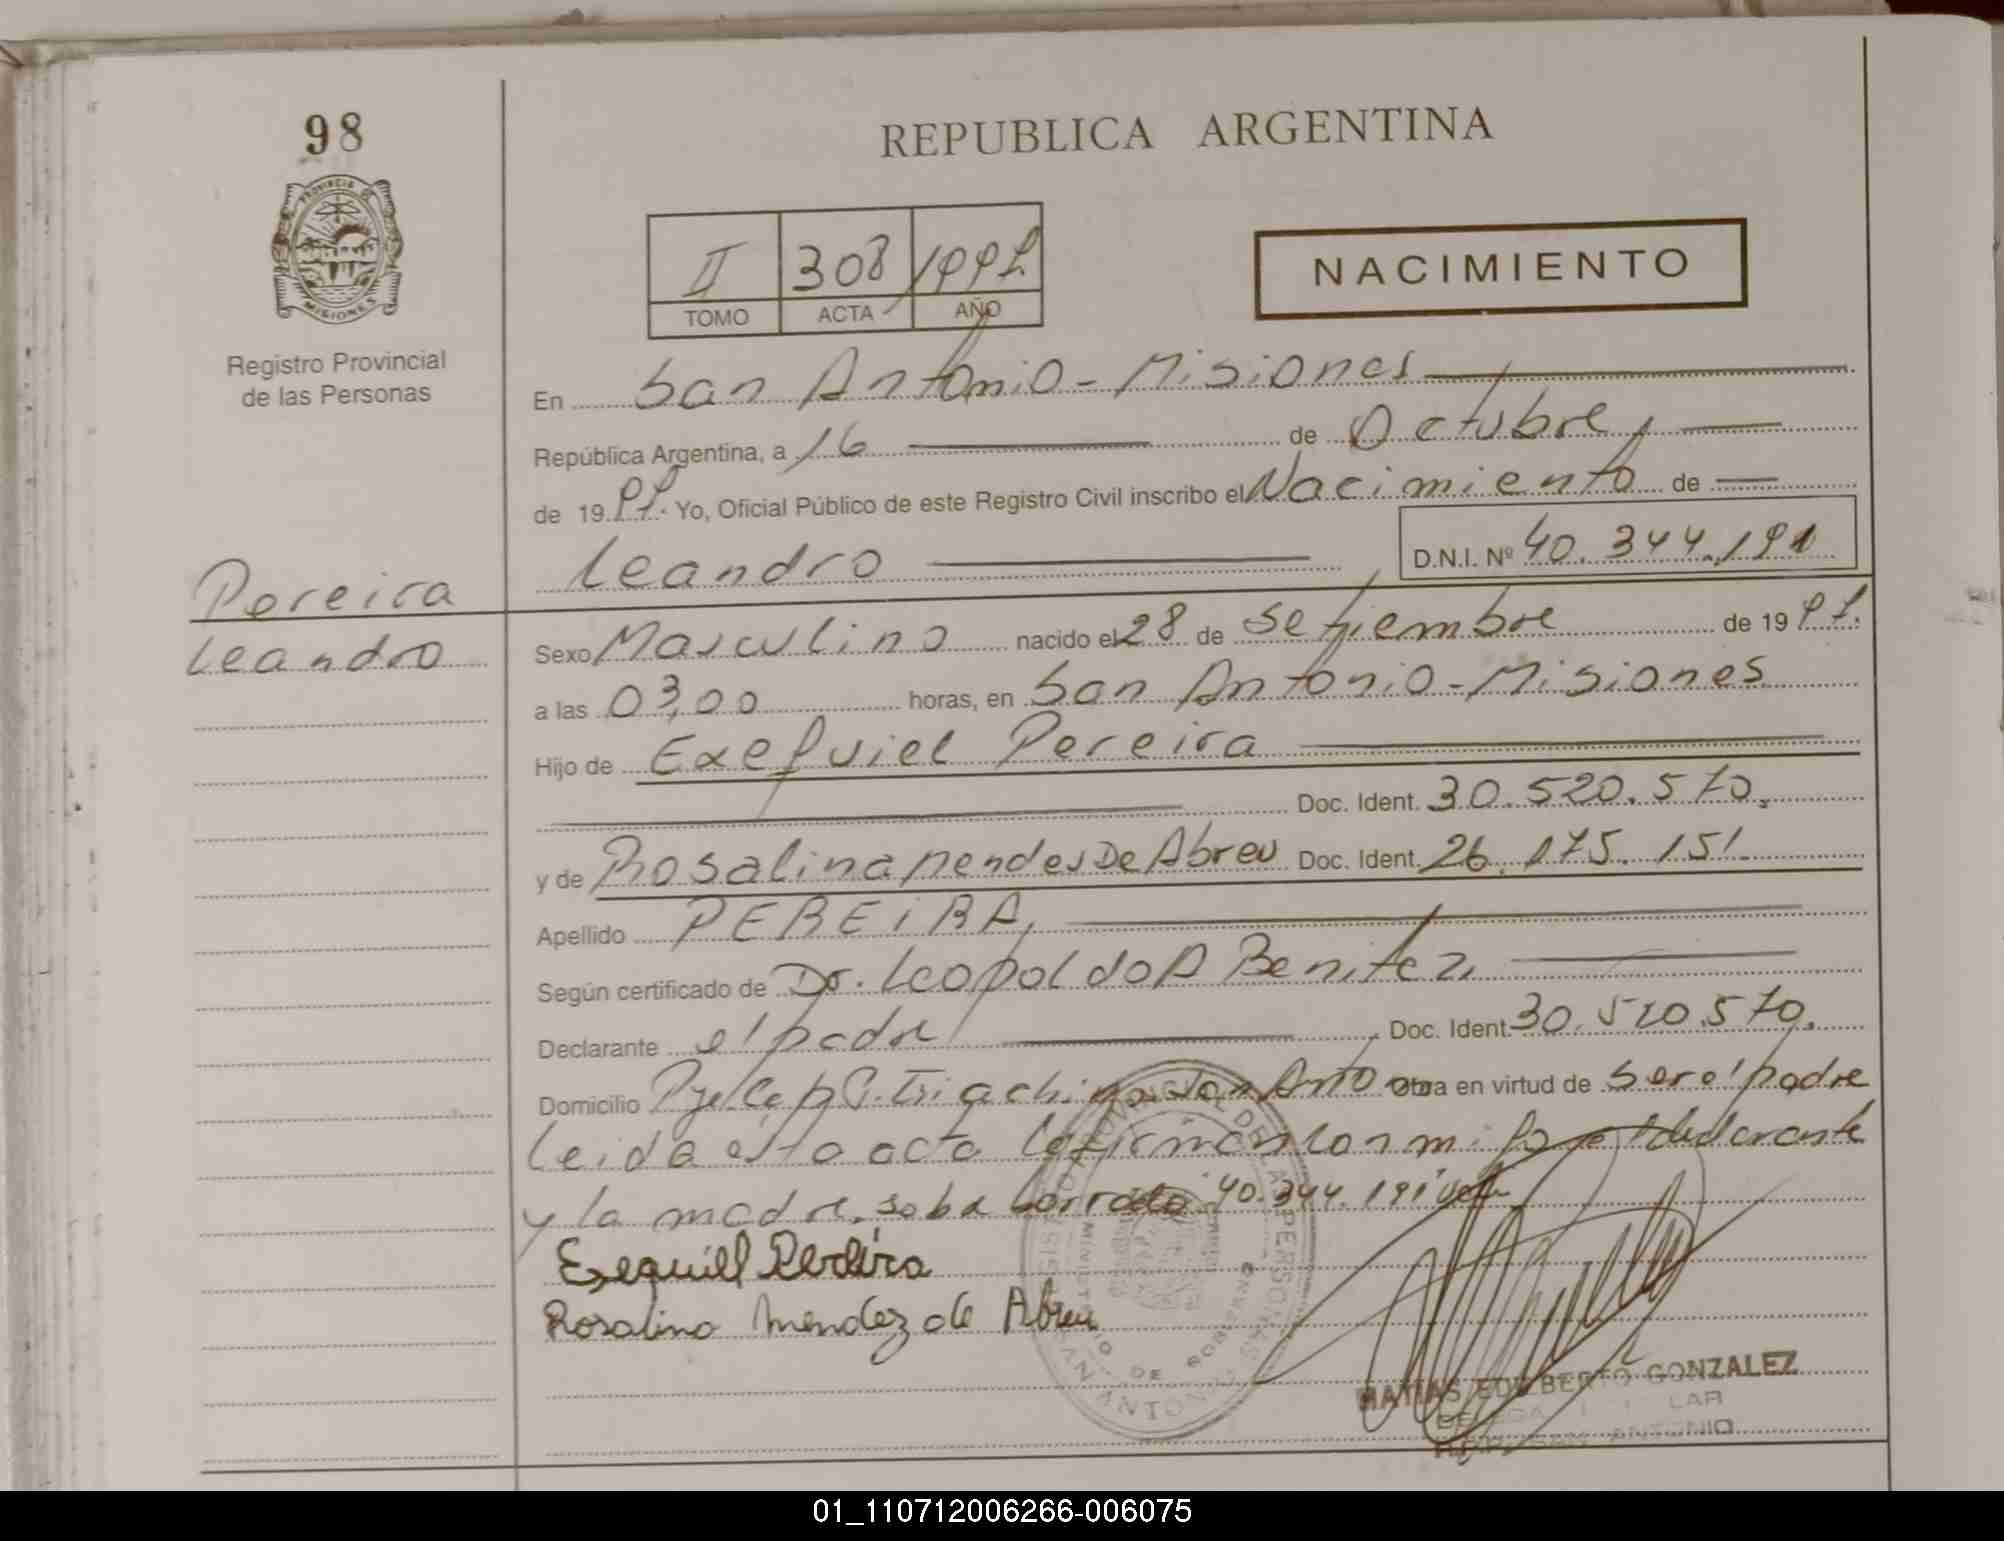 98
REPUBLICA ARGENTINA
PROVINCIA DE
MISIONES
Registro Provincial
de las Personas
II 308 1997
TOMO ACTA AÑO
NACIMIENTO
En San Antonio - Misiones
República Argentina, a 16 de Octubre,
de 1997. Yo, Oficial Público de este Registro Civil inscribo el Nacimiento de
Leandro D.N.I. Nº 40.344.191
Pereira
Leandro
Sexo Masculino nacido el 28 de Setiembre de 1997.
a las 03,00 horas, en San Antonio - Misiones
Hijo de Exequiel Pereira
Doc. Ident. 30.520.570.
y de Rosalina Mendes De Abreu Doc. Ident. 26.175.151.
Apellido PEREIRA,
Según certificado de Dr. Leopoldo A Benitez,
Declarante el padre Doc. Ident. 30.520.570.
Domicilio San Anto Obra en virtud de ser el padre
Leida esta acta la firman con mi el declarante
y la madre. sobre borrado: 40.344.191 vale
Exequiel Pereira
Rosalina Mendez de Abreu
REGISTRO PROVINCIAL DE LAS PERSONAS
MINISTERIO DE GOBIERNO
SAN ANTONIO
MATIAS EDILBERTO GONZALEZ
SAN ANTONIO
01_110712006266-006075